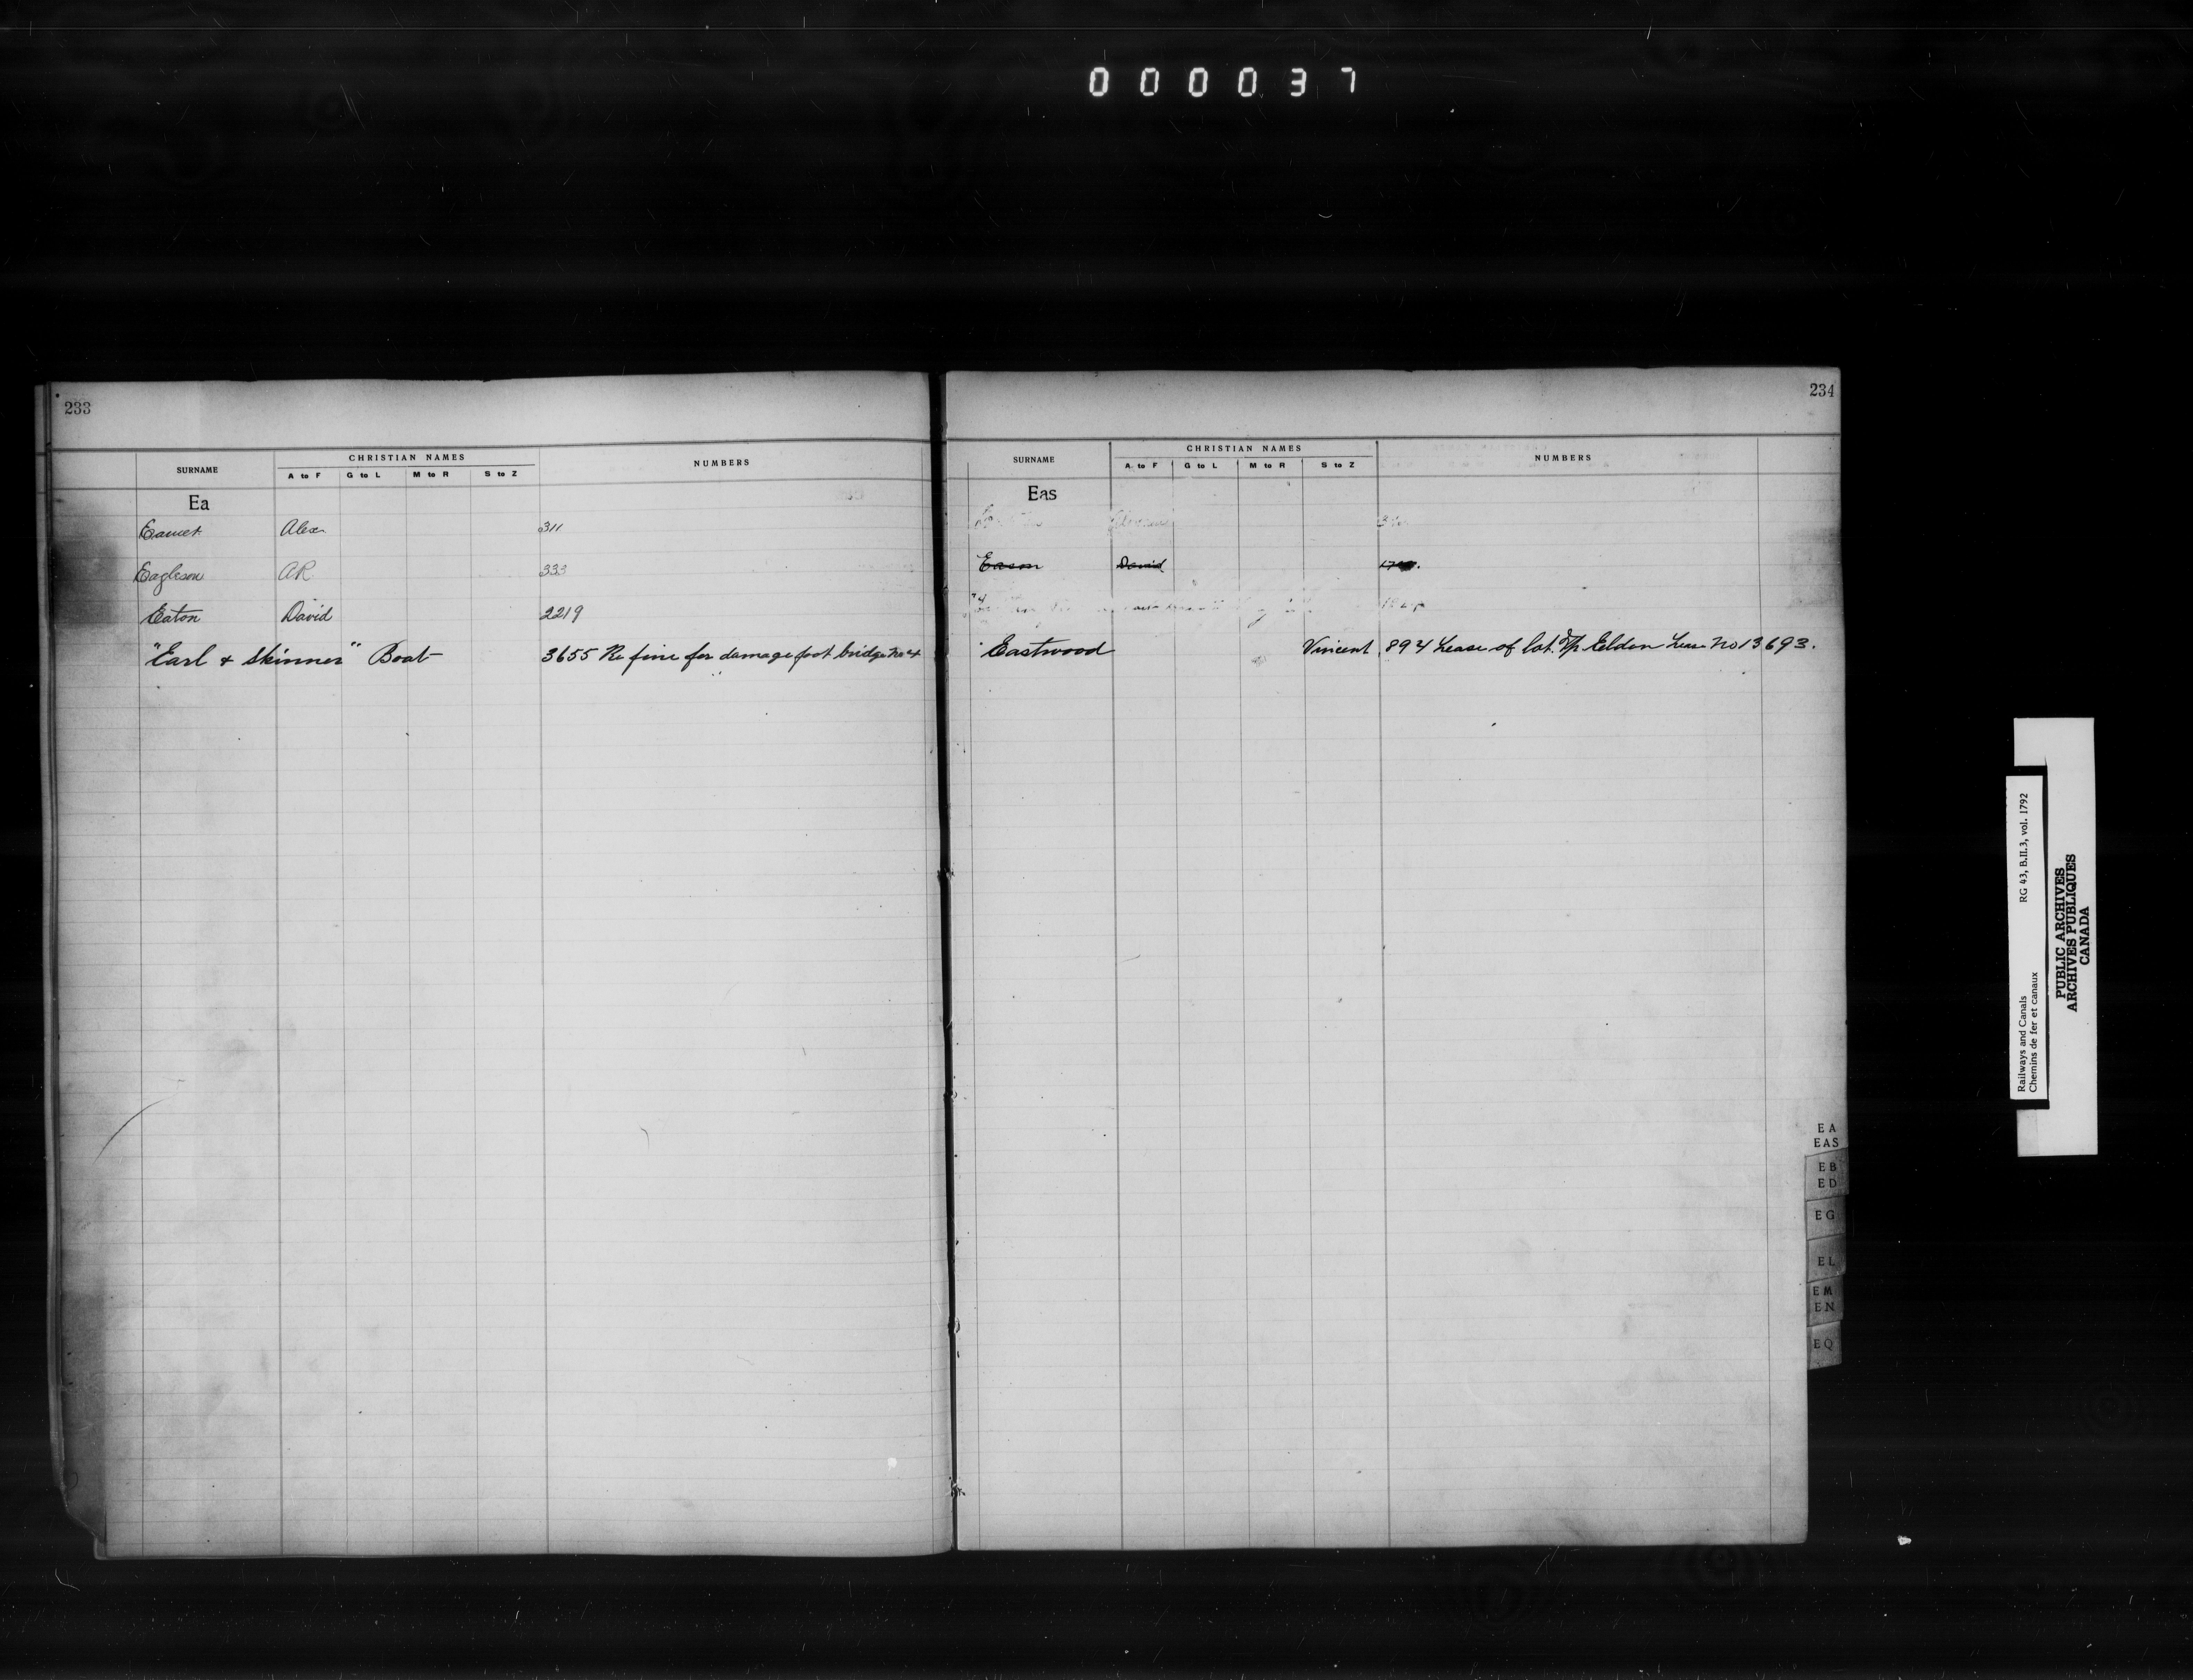 000037
233
SURNAME CHRISTIAN NAMES NUMBERS
A to F G to L M to R S to Z
Ea
Alex 311
Eagleson AR 333
Eaton David 2219
"Earl & Skinner" Boat 3655 Re fine for damage foot bridge No 4
234
SURNAME CHRISTIAN NAMES NUMBERS
A to F G to L M to R S to Z
Eas
Eason David
Eastwood Vincent 894 Lease of lot Tp Eldon Lease No 13693.
EA
EAS
EB
ED
EG
EL
EM
EN
EQ
Railways and Canals RG 43, B.II.3, vol. 1792
Chemins de fer et canaux
PUBLIC ARCHIVES
ARCHIVES PUBLIQUES
CANADA